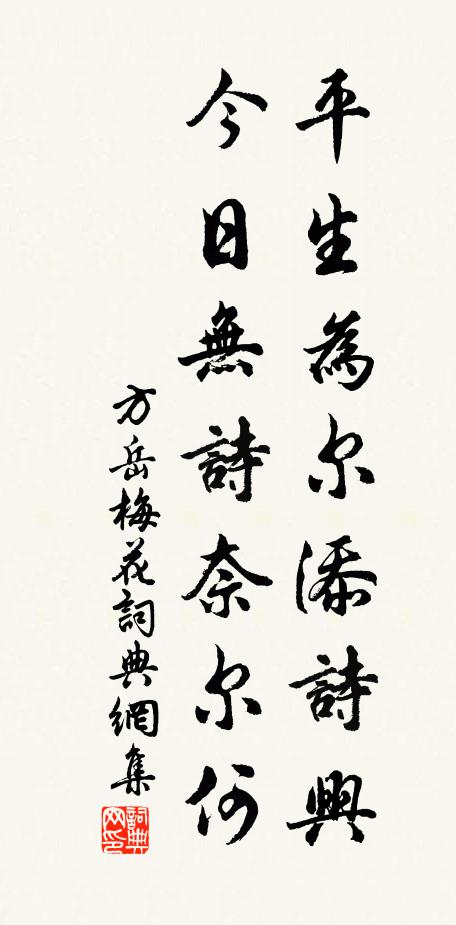 平生為尔添詩興
今日無詩奈尔何
方岳梅花詞典網集
詞典网印